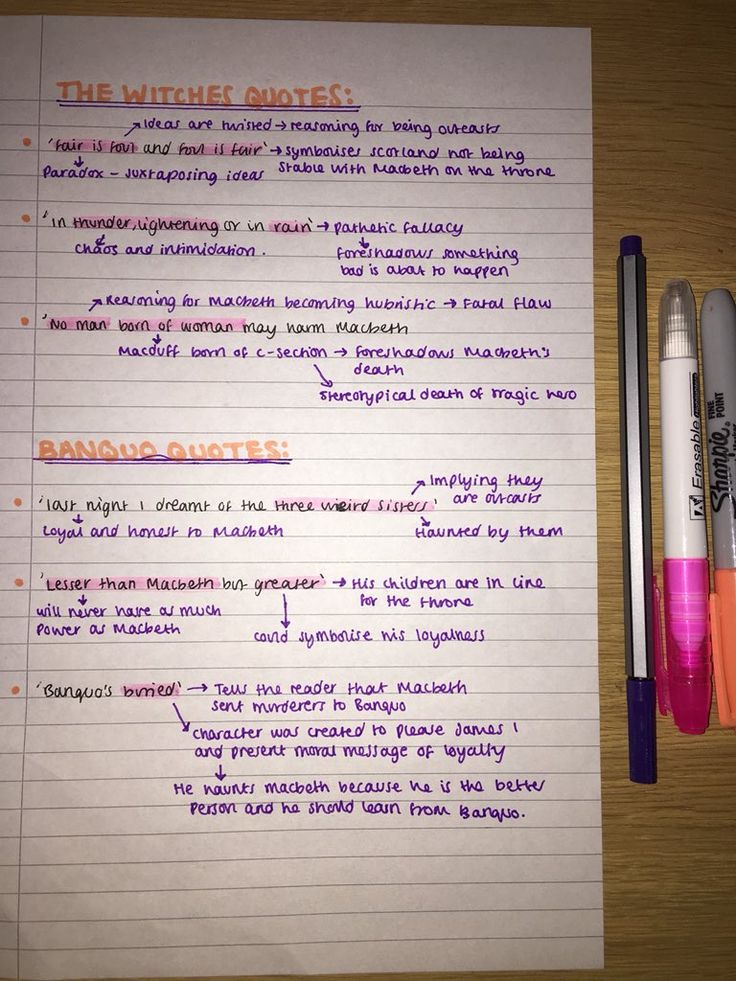 THE WITCHES QUOTES:
Ideas are twisted → reasoning for being outcasts
'Fair is foul and foul is fair' → symbolises scotland not being
Paradox - Juxtaposing ideas stable with Macbeth on the throne
'In thunder, lightening or in rain' → pathetic fallacy
chaos and intimidation. foreshadows something
bad is about to happen
Reasoning for Macbeth becoming hubristic → Fatal flaw
'No man born of woman may harm Macbeth
Macduff born of c-section → foreshadows Macbeth's
death
stereotypical death of tragic hero
BANQUO QUOTES:
Implying they
are outcasts
'last night I dreamt of the three weird sisters'
Loyal and honest to Macbeth Haunted by them
'Lesser than Macbeth but greater' → His children are in line
for the throne
will never have as much
power as Macbeth
could symbolise his loyalness
'Banquo's buried' → Tells the reader that Macbeth
sent murderers to Banquo
character was created to please James 1
and present moral message of loyalty
He haunts macbeth because he is the better
person and he should learn from Banquo.
Erasable
Sharpie
FINE
POINT